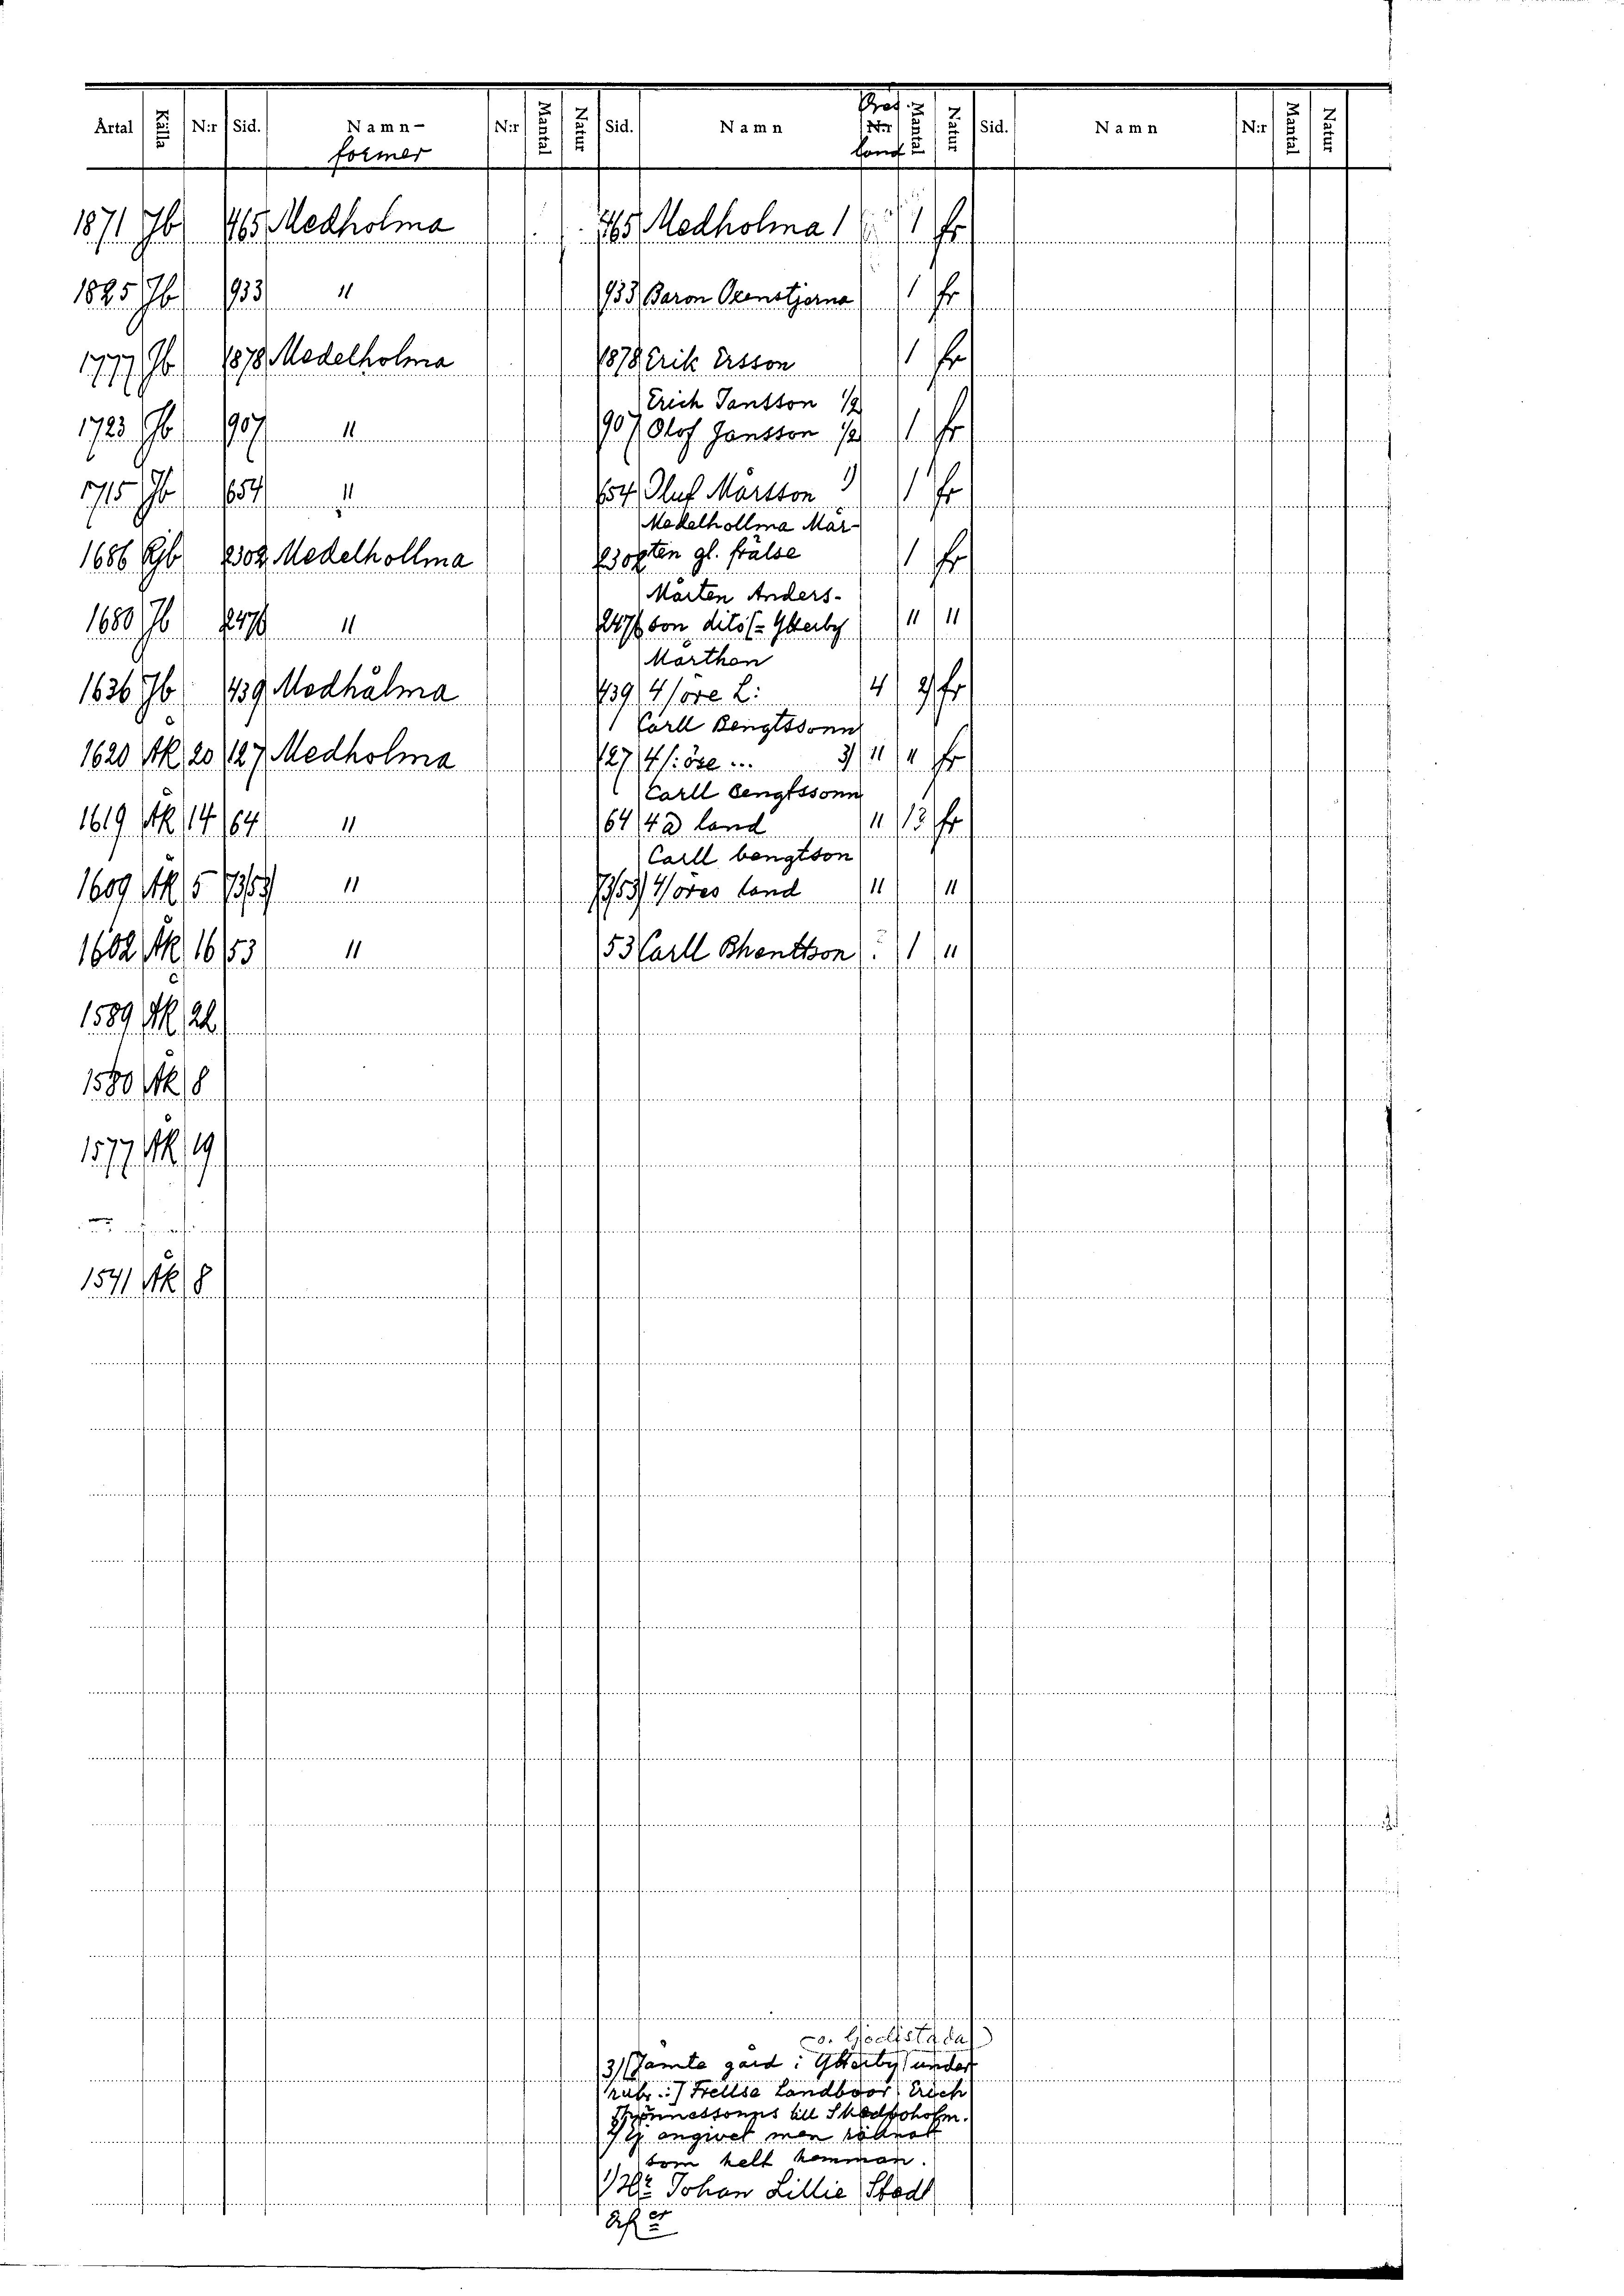 Årtal Källa N:r Sid. Namn- N:r Mantal Natur Sid. Namn N:r Mantal Natur Sid. Namn N:r Mantal Natur
former land
1871 Jb 465 Medholma 465 Medholma 1 1 fr
1825 Jb 933 " 933 Baron Oxenstjerna 1 fr
1777 Jb 1878 Medelholma 1878 Erik Ersson 1 fr
Erich Jansson 1/2
1723 Jb 907 " 907 Olof Jansson 1/2 1 fr
1715 Jb 654 " 654 Oluf Mårsson 1) 1 fr
Medelhollma Mår-
1686 Rjb 2302 Medelhollma 2302 ten gl. frälse 1 fr
Mårten Anders-
1680 Jb 2476 " 2476 son dito (= Ytterby " "
Mårthen
1636 Jb 439 Medhålma 439 4 öre L: 4 2) fr
Carll Bengtssonn
1620 ÅK 20 127 Medholma 127 4 /: öre ... 3) " " fr
Carll Bengtssonn
1619 ÅK 14 64 " 64 4 land " fr
Carll bengtson
1609 ÅK 5 " 4 öres land " "
1602 ÅK 16 53 " 53 Carll Bhenttson 1 "
1589 ÅK 22
1580 ÅK 8
1577 ÅK 19
1541 ÅK 8
3) Jämte gård i Ytterby under
rubr.: Frellse Landboor Erich
till
2) Ej angivet men räknat
som helt hemman.
1) Hr Johan Lillie